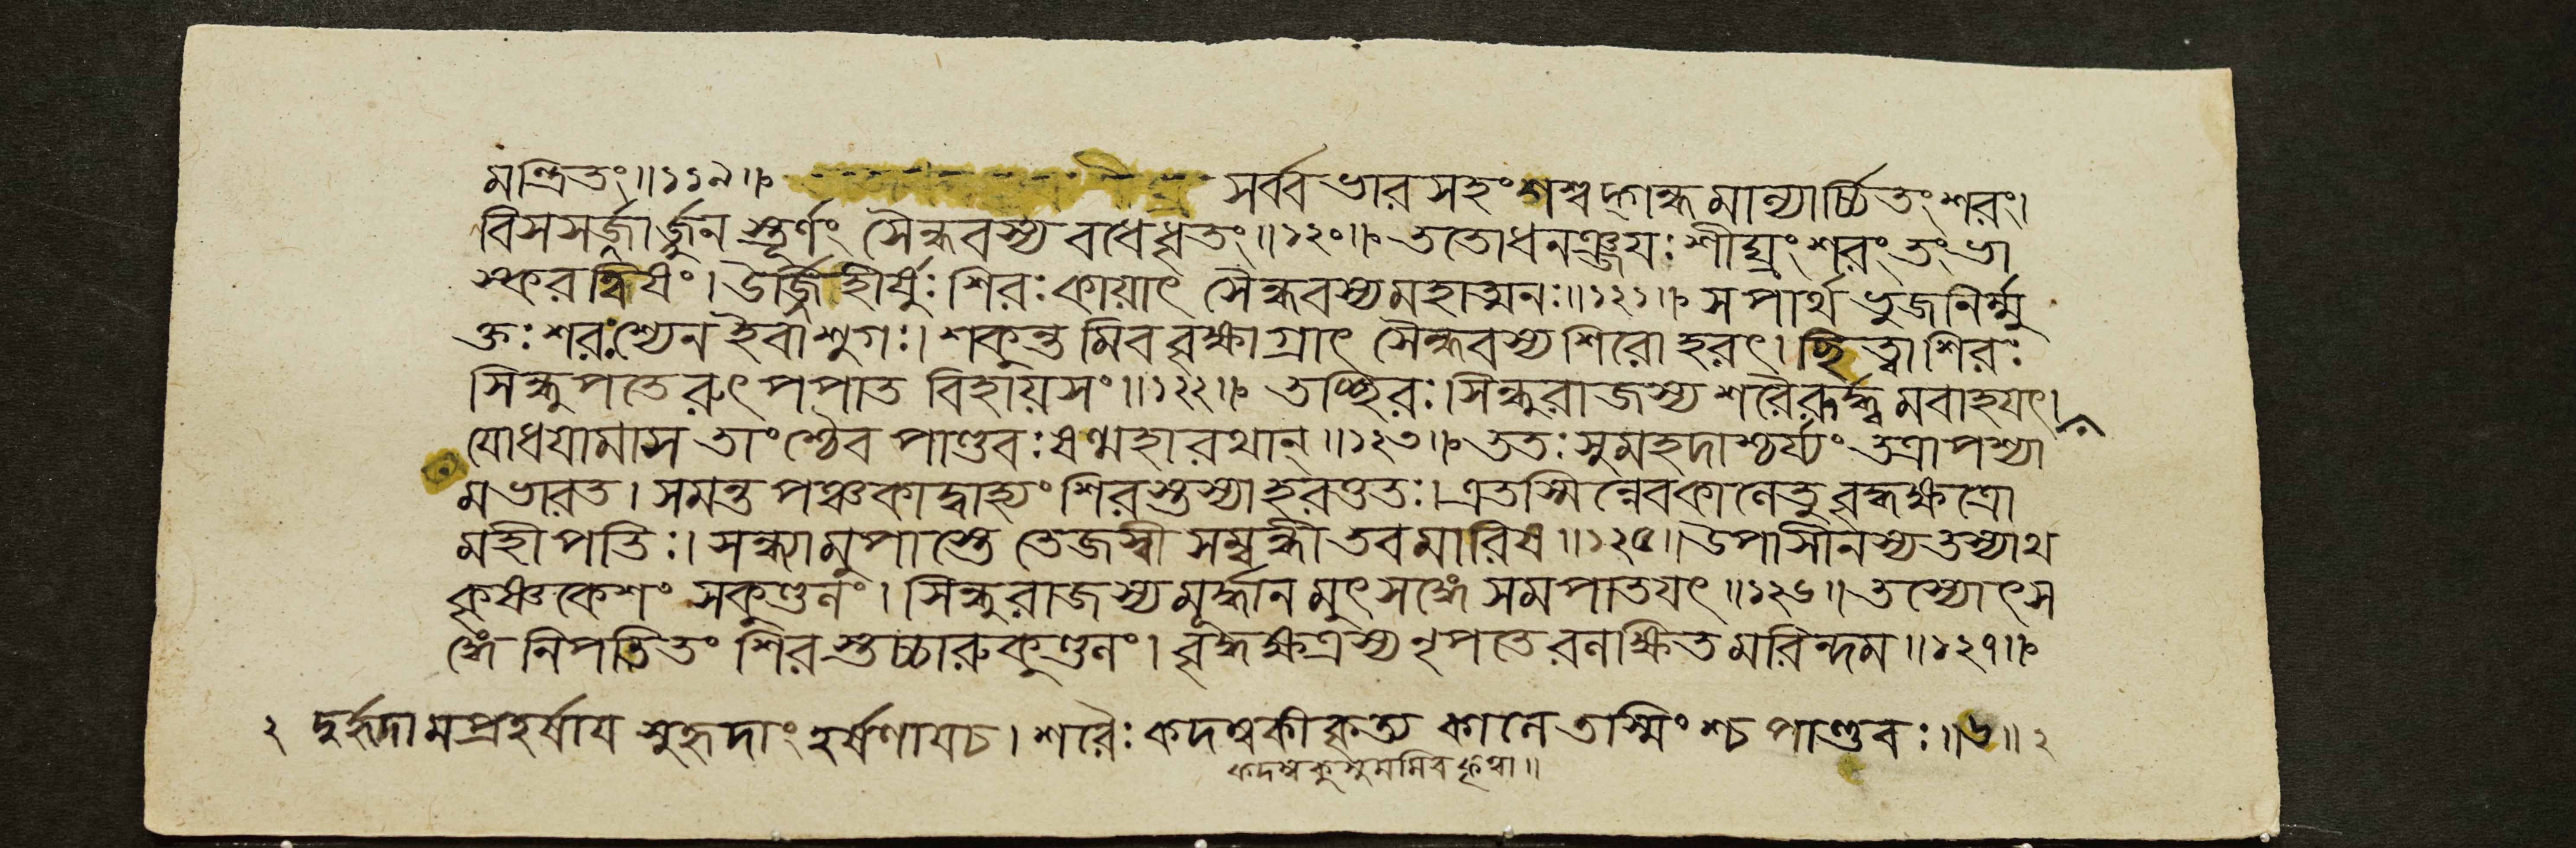 মন্ত্রিতং॥১১৯॥ সর্ব্বভারসহং শশ্বদ্গন্ধমাল্যার্চ্চিতং শরং।
বিসসর্জার্জুন স্তূর্ণং সৈন্ধবস্য বধে ধৃতং॥১২০॥ ততো ধনঞ্জযঃ শীঘ্রং শরং তং ভা
স্কর ত্বিষং। জিহীর্ষুঃ শিরঃ কায়াৎ সৈন্ধবস্য মহাত্মনঃ॥১২১॥ স পার্থ ভুজনির্ম্মু
ক্তঃ শরঃ শ্যেন ইবাশুগঃ। শকুন্ত মিব বৃক্ষাগ্রাৎ সৈন্ধবস্য শিরো হরৎ। ছিত্বা শিরঃ
সিন্ধুপতে রুৎপপাত বিহায়সং॥১২২॥ তচ্ছিরঃ সিন্ধুরাজস্য শরৈরূর্দ্ধ্ব মবাহযৎ।
যোধযামাস তাংশ্চৈব পাণ্ডবঃ ষণ্মহারথান্॥১২৩॥ ততঃ সুমহদাশ্চর্য্যং তত্রাপশ্যা
ম ভারত। সমন্ত পঞ্চকাদ্বাহ্যং শিরস্তস্যাহরত্ততঃ। এতস্মিন্নেব কালেতু বৃদ্ধক্ষত্রো
মহীপতিঃ। সন্ধ্যামুপাস্তে তেজস্বী সম্বন্ধী তব মারিষ॥১২৫॥ উপাসীনস্য তস্যাথ
কৃষ্ণকেশং সকুণ্ডলং। সিন্ধুরাজস্য মূর্দ্ধান মুৎসঙ্গে সমপাতযৎ॥১২৬॥ তস্যোৎস
ঙ্গে নিপতিতং শির স্তচ্চারুকুণ্ডলং। বৃদ্ধক্ষত্রস্য নৃপতে রলক্ষিত মরিন্দম॥১২৭॥
২ দুর্হৃদাম প্রহর্ষায সুহৃদাং হর্ষণাযচ। শরৈঃ কদম্বকীকৃত্য কালে তস্মিংশ্চ পাণ্ডবঃ॥৬॥২
কদম্বকুসুমমিব কৃত্বা॥